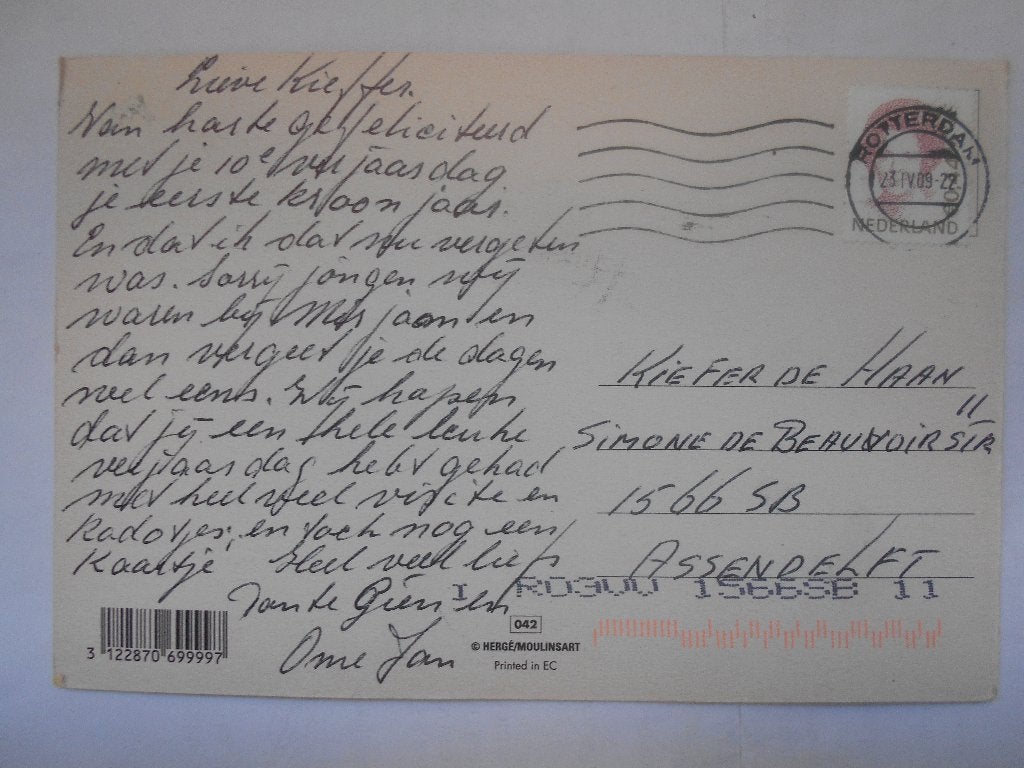 Lieve Kieffer.
Van harte gefeliciteerd
met je 10e verjaasdag
je eerste kroon jaar.
En dat ik dat nu vergeten
was. Sorry jongen wij
waren bij Mirjaan en
dan vergeet je de dagen
wel eens. Wij hopen
dat jij een hele leuke
verjaasdag hebt gehad
met heel veel visite en
kadotjes, en toch nog een
Kaartje, Heel veel liefs
Tante Gien en
Ome Jan
ROTTERDAM
23 IV 09-22
NEDERLAND
KIEFER DE HAAN
11
SIMONE DE BEAUVOIRSTR
1566 SB
ASSENDELFT
I RD300 1566SB 11
3 122870 699997
042
© HERGÉ/MOULINSART
Printed in EC